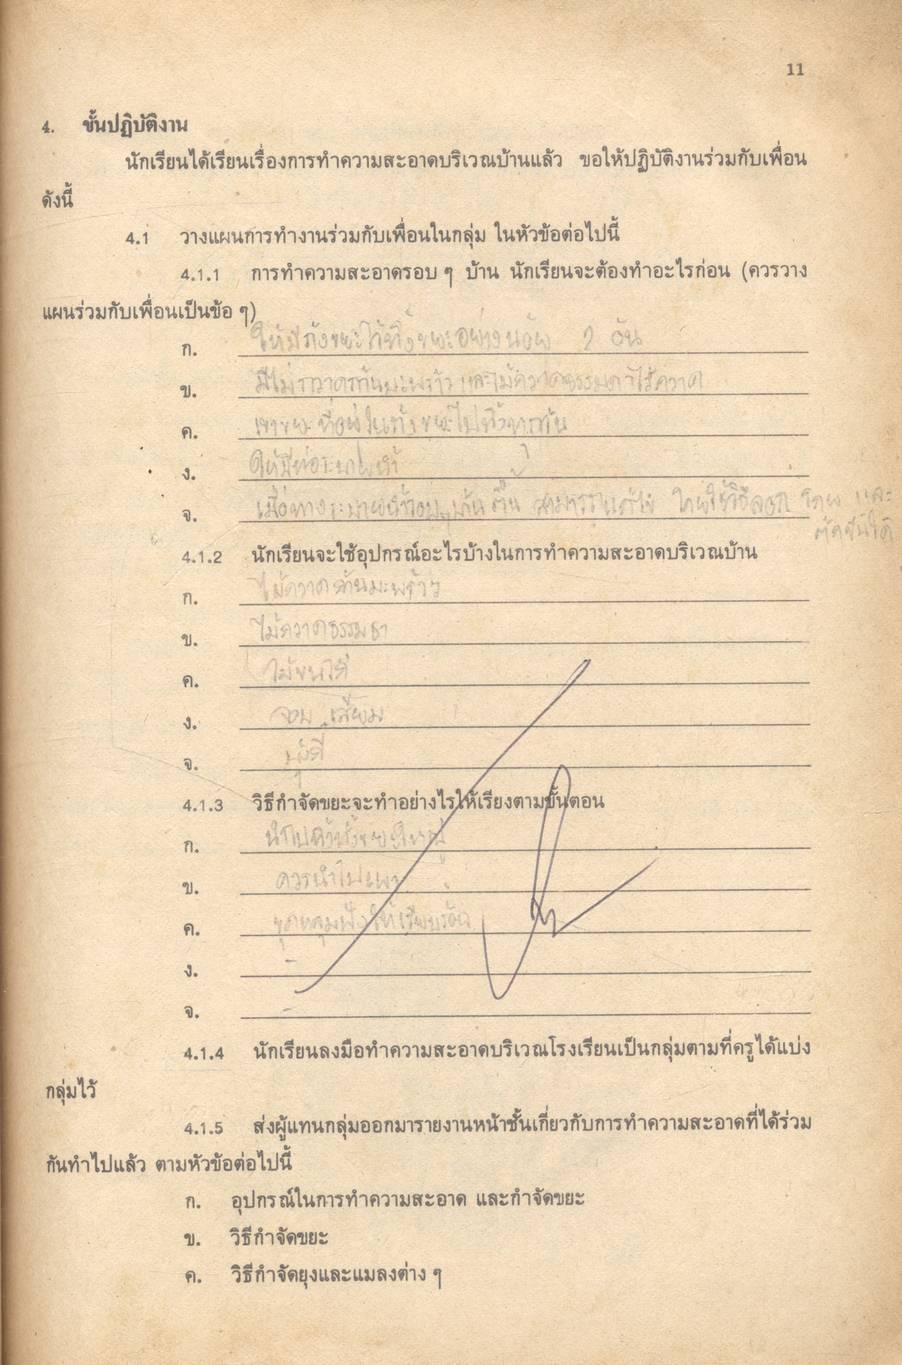 11
4. ขั้นปฏิบัติงาน
นักเรียนได้เรียนเรื่องการทำความสะอาดบริเวณบ้านแล้ว ขอให้ปฏิบัติงานร่วมกับเพื่อน
ดังนี้
4.1 วางแผนการทำงานร่วมกับเพื่อนในกลุ่ม ในหัวข้อต่อไปนี้
4.1.1 การทำความสะอาดรอบ ๆ บ้าน นักเรียนจะต้องทำอะไรก่อน (ควรวาง
แผนร่วมกับเพื่อนเป็นข้อ ๆ)
ก. ให้มีถังขยะไว้ทิ้งขยะอย่างน้อย 2 อัน
ข. มีไม้กวาดก้านมะพร้าว และไม้กวาดธรรมดาไว้กวาด
ค. เอาขยะที่อยู่ในถังขยะไปทิ้งทุกวัน
ง. ให้มีท่อระบายน้ำ
จ. เมื่อทางระบายน้ำ ตื้น สามารถแก้ไข โดยใช้วิธีลอก โดย และ
4.1.2 นักเรียนจะใช้อุปกรณ์อะไรบ้างในการทำความสะอาดบริเวณบ้าน
ก. ไม้กวาดก้านมะพร้าว
ข. ไม้กวาดธรรมดา
ค. ไม้ขนไก่
ง. จอบ เสียม
จ. บุ้งกี๋
4.1.3 วิธีกำจัดขยะจะทำอย่างไรให้เรียงตามขั้นตอน
ก.
ข. ควรนำไปเผา
ค. ขุดหลุมฝังให้เรียบร้อย
ง. -
จ. -
4.1.4 นักเรียนลงมือทำความสะอาดบริเวณโรงเรียนเป็นกลุ่มตามที่ครูได้แบ่ง
กลุ่มไว้
4.1.5 ส่งผู้แทนกลุ่มออกมารายงานหน้าชั้นเกี่ยวกับการทำความสะอาดที่ได้ร่วม
กันทำไปแล้ว ตามหัวข้อต่อไปนี้
ก. อุปกรณ์ในการทำความสะอาด และกำจัดขยะ
ข. วิธีกำจัดขยะ
ค. วิธีกำจัดยุงและแมลงต่าง ๆ